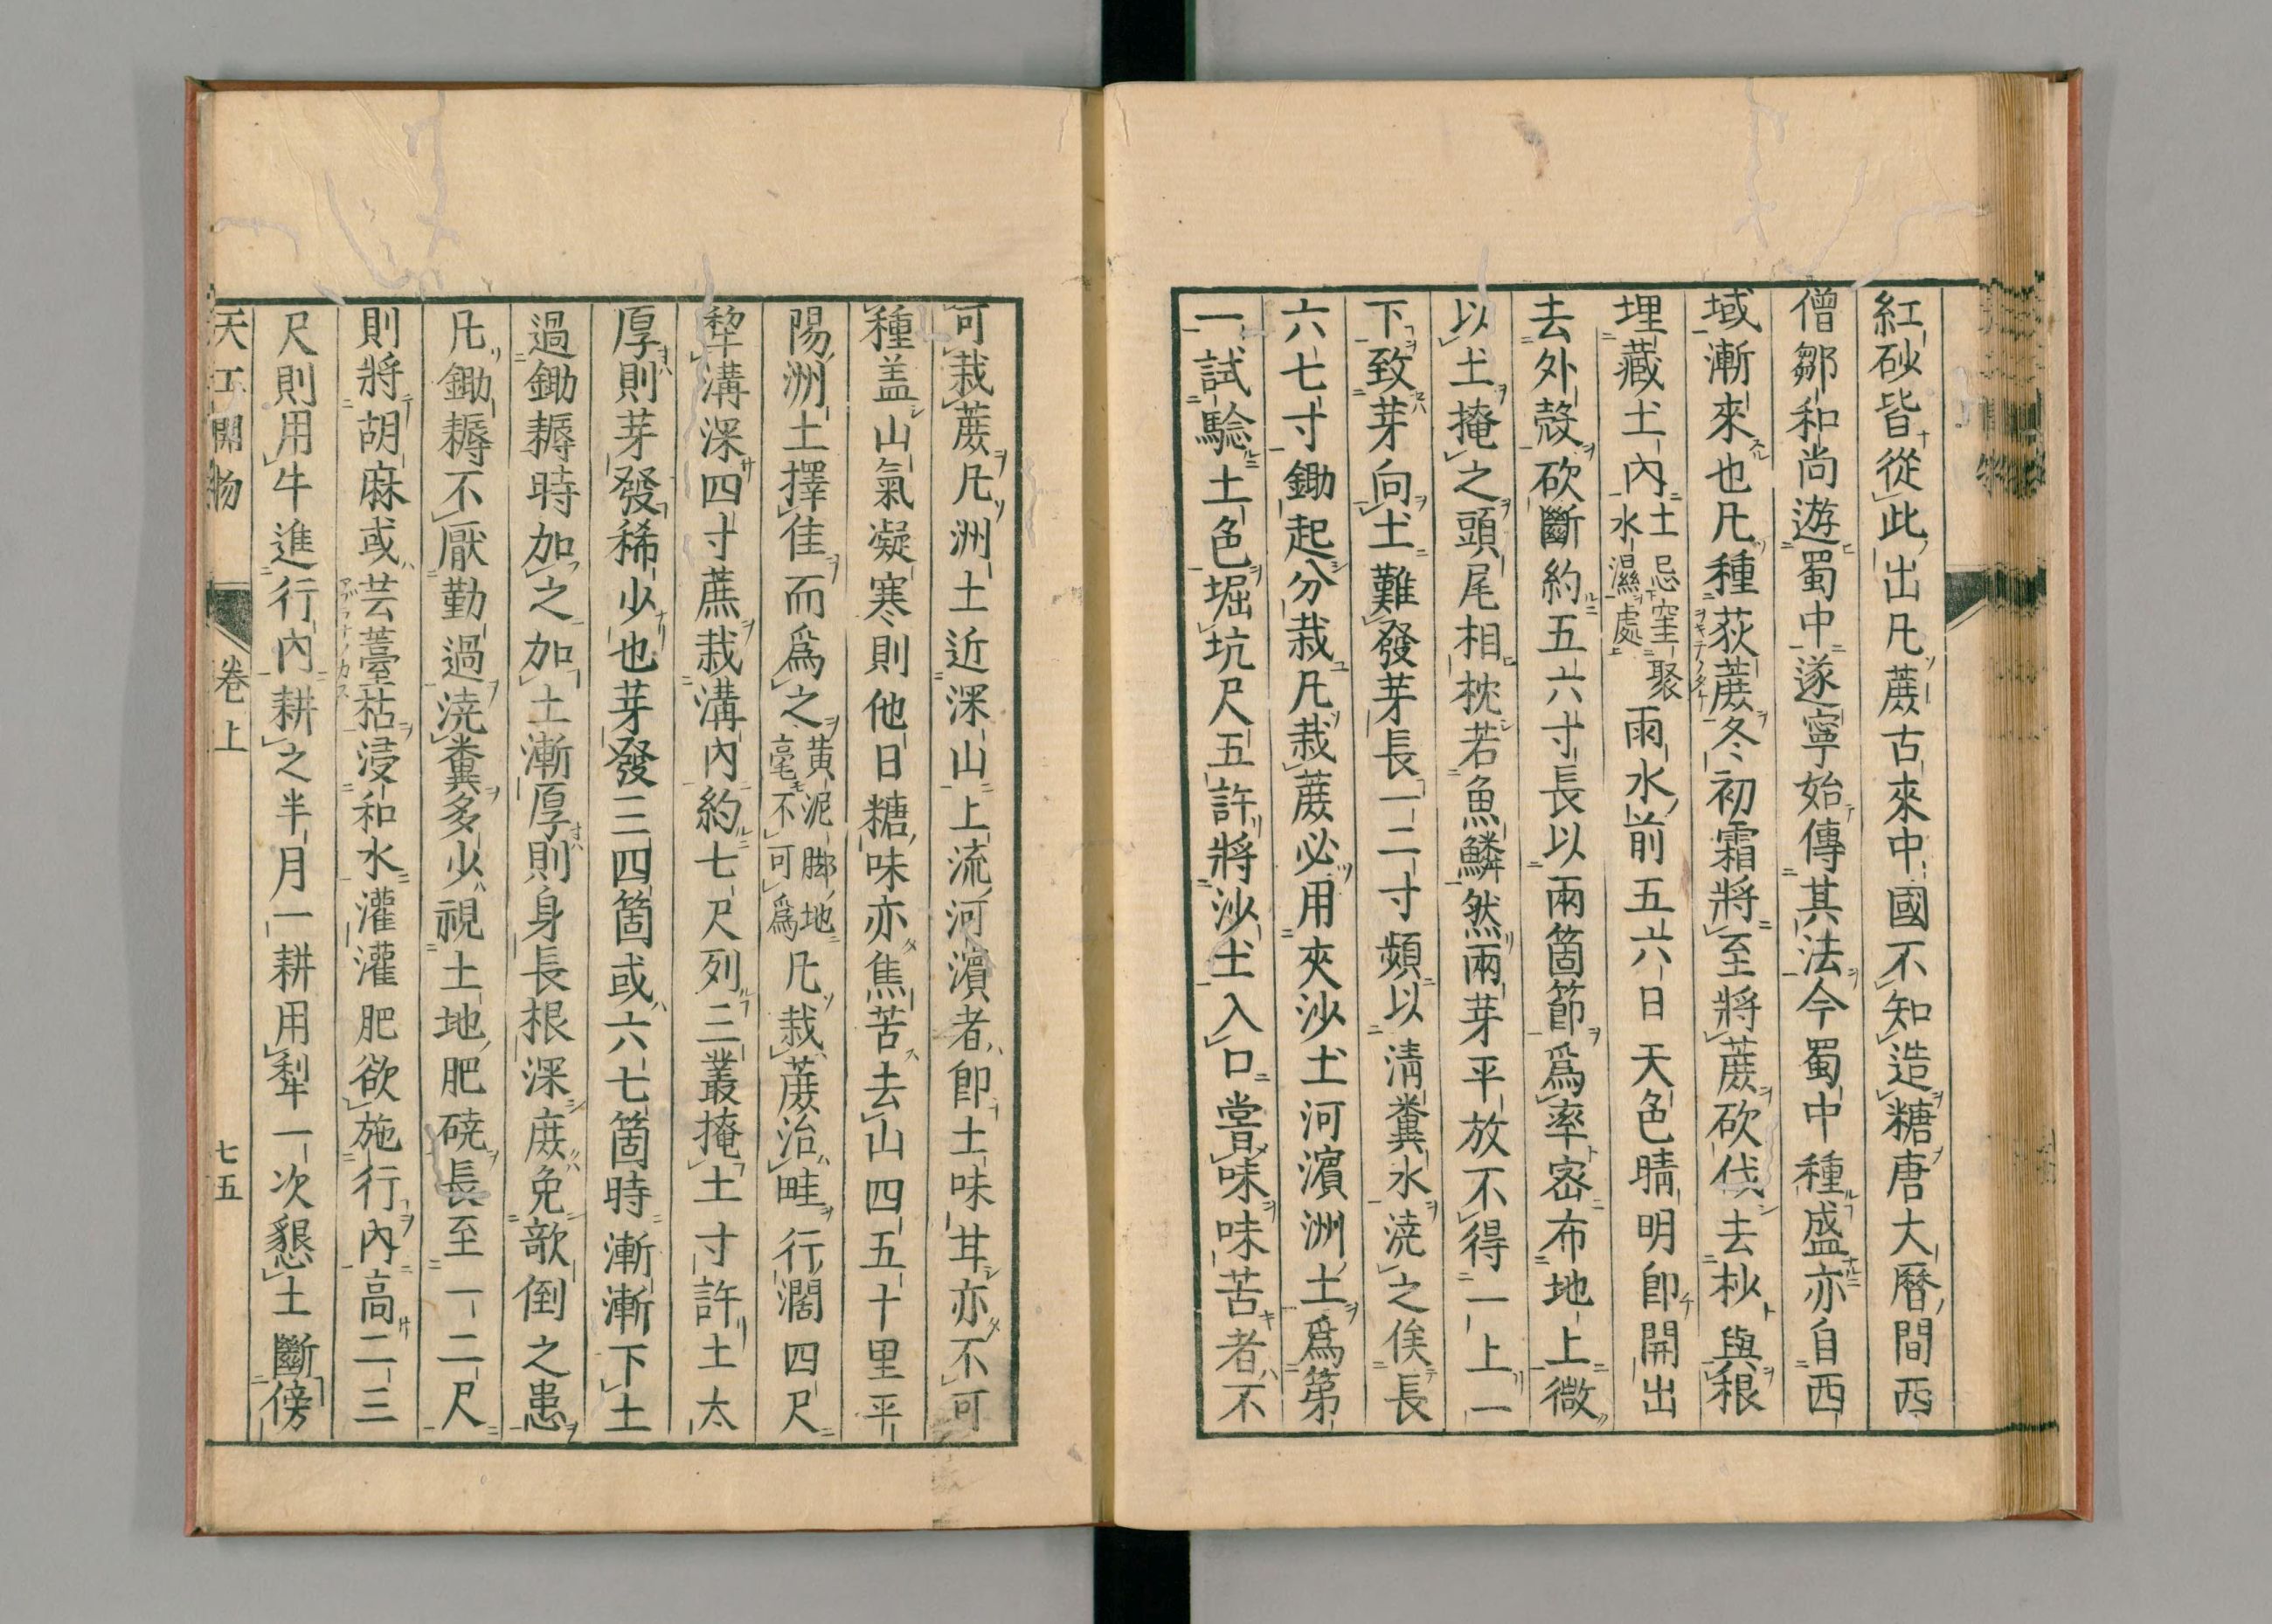 紅砂皆從此出凡蔗古來中國不知造糖唐大曆間西
僧鄒和尚遊蜀中遂寧始傳其法今蜀中種盛亦自西
域漸來也凡種荻蔗冬初霜將至將蔗砍伐去杪與根
埋藏土內土忌窪聚水濕處雨水前五六日天色晴明卽開出
去外殼砍斷約五六寸長以兩箇節爲率密布地上微
以土掩之頭尾相枕若魚鱗然兩芽平放不得一上一
下致芽向土難發芽長一二寸頻以清糞水澆之俟長
六七寸鋤起分栽凡栽蔗必用夾沙土河濱洲土爲第
一試驗土色堀坑尺五許將沙土入口嘗味味苦者不
可栽蔗凡洲土近深山上流河濱者卽土味甘亦不可
種盖山氣凝寒則他日糖味亦焦苦去山四五十里平
陽洲土擇佳而爲之黃泥脚地毫不可爲凡栽蔗治畦行濶四尺
犂溝深四寸蔗栽溝內約七尺列三叢掩土寸許土太
厚則芽發稀少也芽發三四箇或六七箇時漸漸下土
過鋤耨時加之加土漸厚則身長根深庶免欹倒之患
凡鋤耨不厭勤過澆糞多少視土地肥磽長至一二尺
則將胡麻或芸薹枯浸和水灌灌肥欲施行內高二三
尺則用牛進行內耕之半月一耕用犂一次懇土斷傍
天工開物 卷上 七五